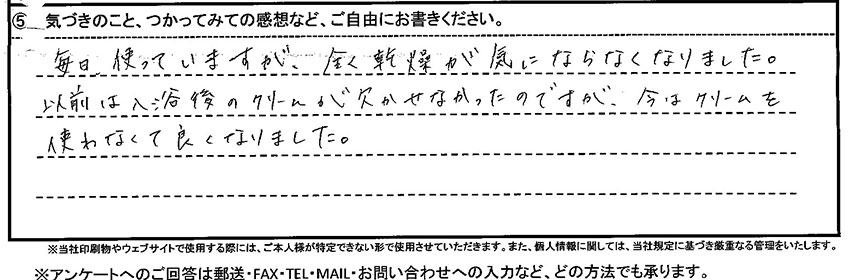 ⑤ 気づきのこと、つかってみての感想など、ご自由にお書きください。
毎日、使っていますが、全く乾燥が気にならなくなりました。
以前は入浴後のクリームが欠かせなかったのですが、今はクリームを
使わなくて良くなりました。
※当社印刷物やウェブサイトで使用する際には、ご本人様が特定できない形で使用させていただきます。また、個人情報に関しては、当社規定に基づき厳重なる管理をいたします。
※アンケートへのご回答は郵送・FAX・TEL・MAIL・お問い合わせへの入力など、どの方法でも承ります。